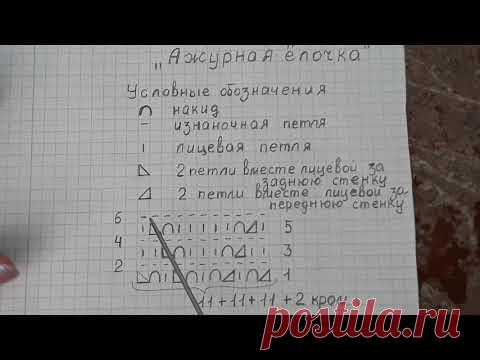 „Ажурная ёлочка"
Условные обозначения
∩ накид
– изнаночная петля
ı лицевая петля
◺ 2 петли вместе лицевой за
заднюю стенку
◿ 2 петли вместе лицевой за
переднюю стенку
6
5
4
3
2
1
11+11+11+2 кром
posti.ru